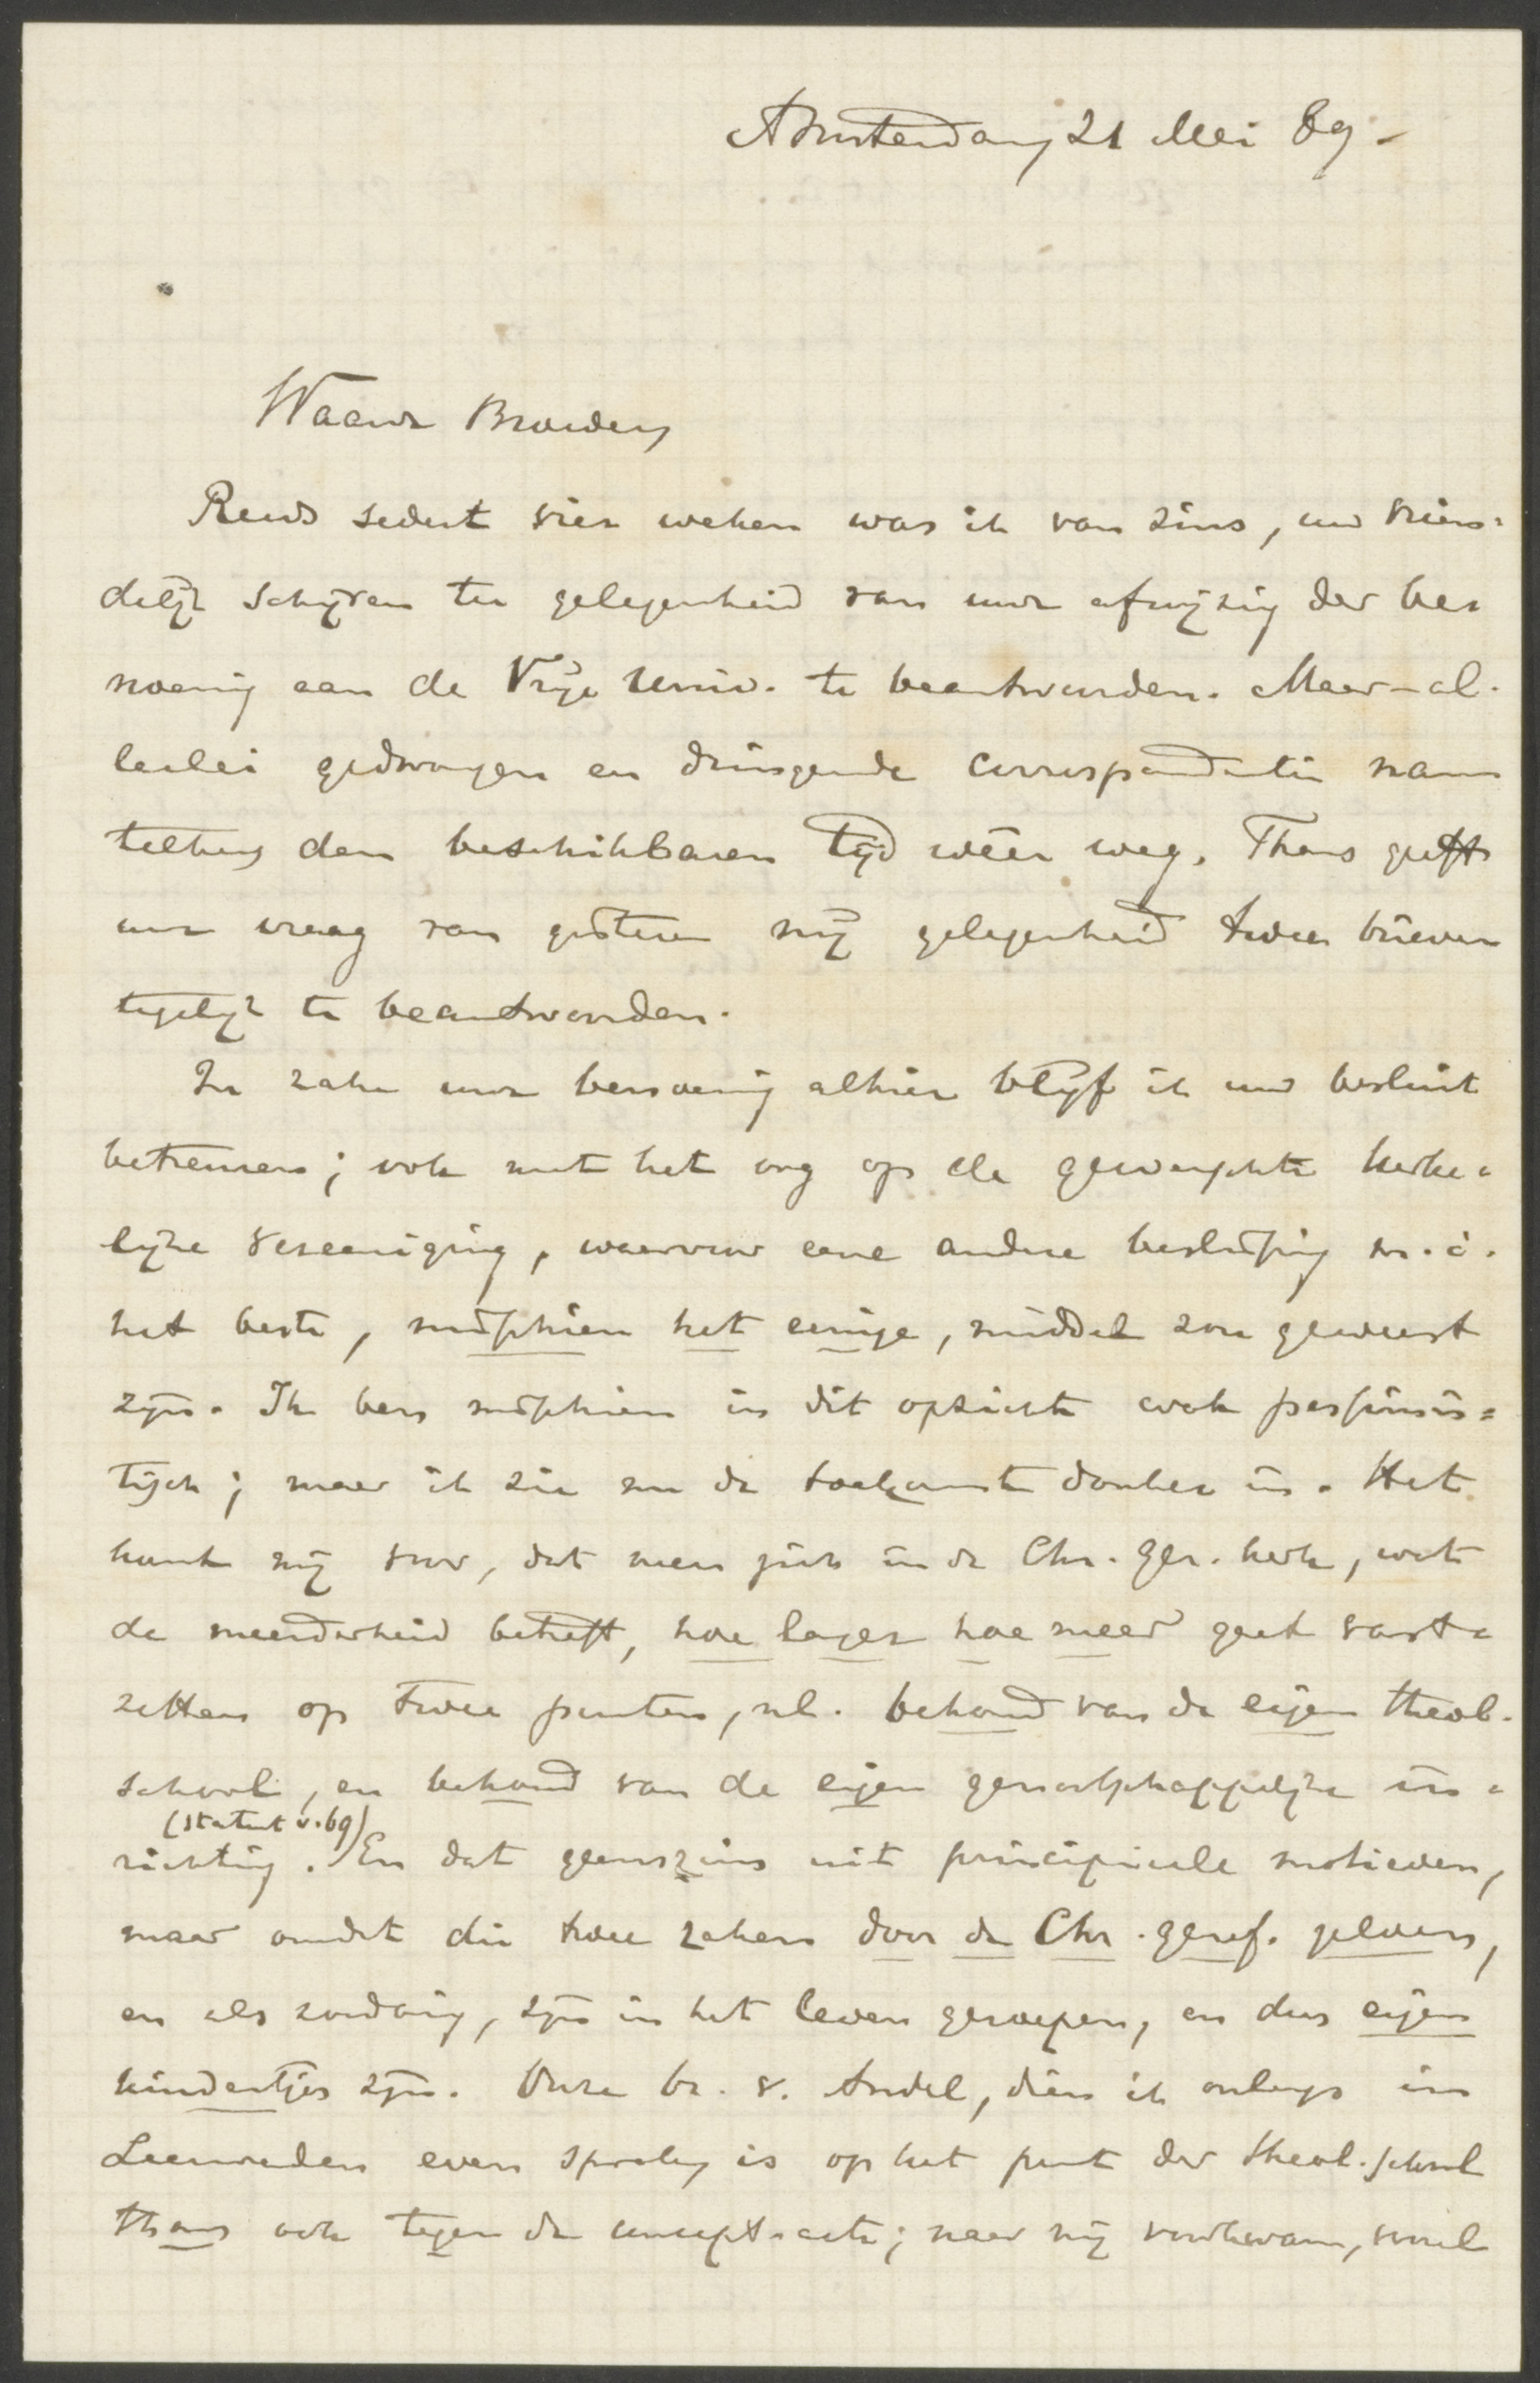 Amsterdam 21 Mei 89.
Waarde Broeder,
Reeds sedert vier weken was ik van zins, uw vrien-
delijk schrijven ter gelegenheid van uwe afwijzing der be-
noeming aan de Vrije Univ. te beantwoorden. Maar al-
lerlei gedwongen en dringende correspondentie nam
telkens den beschikbaren tijd wéér weg. Thans geeft
uwe vraag van gisteren mij gelegenheid twee brieven
tegelijk te beantwoorden.
In zake uwe benoeming alhier blijf ik uw besluit
betreuren; ook met het oog op de gewenschte kerke-
lijke vereeniging, waarvoor eene andere beslissing m.i.
het beste, misschien het eenige, middel zou geweest
zijn. Ik ben misschien in dit opzicht wat pessimis-
tisch; maar ik zie nu de toekomst donker in. Het
komt mij voor, dat men zich in de Chr. Ger. kerk, wat
de meerderheid betreft, hoe langer hoe meer gaat vast-
zetten op twee punten, nl. behoud van de eigen theol.
school, en behoud van de eigen genootschappelijke in-
(statuut v. 69)
richting. En dat geenszins uit principieele motieven,
maar omdat die twee zaken door de Chr. geref. gelooven,
en als zoodanig, zijn in het leven geroepen, en dus eigen
kindertjes zijn. Onze br. v. Andel, dien ik onlangs in
Leeuwarden even sprak, is op het punt der theol. school
thans ook tegen de concept-acte; naar mij voorkwam, vooral